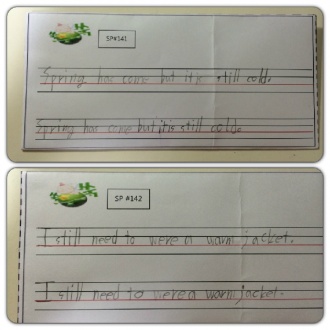 SP#141
Spring has come but it is still cold.
Spring has come but it is still cold.
SP #142
I still need to were a warm jacket.
I still need to were a warm jacket.